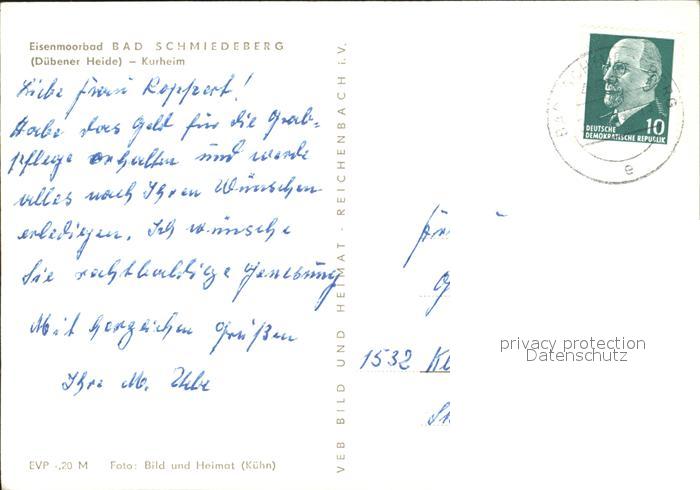 Eisenmoorbad BAD SCHMIEDEBERG
(Dübener Heide) – Kurheim
Liebe Frau Reppert!
Habe das Geld für die Grab-
pflege erhalten und werde
alles nach Ihren Wünschen
erledigen. Ich wünsche
Sie rechtbaldige Genesung
Mit herzlichen Grüßen
Ihre M.
EVP -,20 M Foto: Bild und Heimat (Kühn)
VEB BILD UND HEIMAT · REICHENBACH i.V.
DEUTSCHE
DEMOKRATISCHE REPUBLIK
10
BAD SCHMIEDEBERG
e
1532
privacy protection
Datenschutz